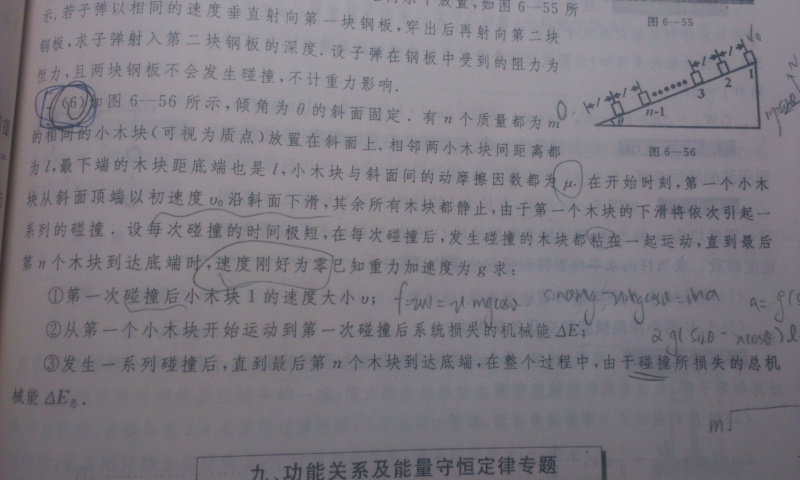 示.若子弹以相同的速度垂直射向第一块钢板,穿出后再射向第二块
钢板,求子弹射入第二块钢板的深度.设子弹在钢板中受到的阻力为
恒力,且两块钢板不会发生碰撞,不计重力影响.
图 6—55
(6)如图 6—56 所示,倾角为 θ 的斜面固定.有 n 个质量都为 m
的相同的小木块(可视为质点)放置在斜面上.相邻两小木块间距离都
为 l,最下端的木块距底端也是 l,小木块与斜面间的动摩擦因数都为 μ.在开始时刻,第一个小木
块从斜面顶端以初速度 v₀ 沿斜面下滑,其余所有木块都静止,由于第一个木块的下滑将依次引起一
系列的碰撞.设每次碰撞的时间极短,在每次碰撞后,发生碰撞的木块都粘在一起运动,直到最后
第 n 个木块到达底端时,速度刚好为零已知重力加速度为 g 求:
l
l
l
v₀
1
2
3
n-1
θ
图 6—56
①第一次碰撞后小木块 1 的速度大小 v;
②从第一个小木块开始运动到第一次碰撞后系统损失的机械能 ΔE;
③发生一系列碰撞后,直到最后第 n 个木块到达底端,在整个过程中,由于碰撞所损失的总机
械能 ΔE总.
a=g(
m
九、功能关系及能量守恒定律专题